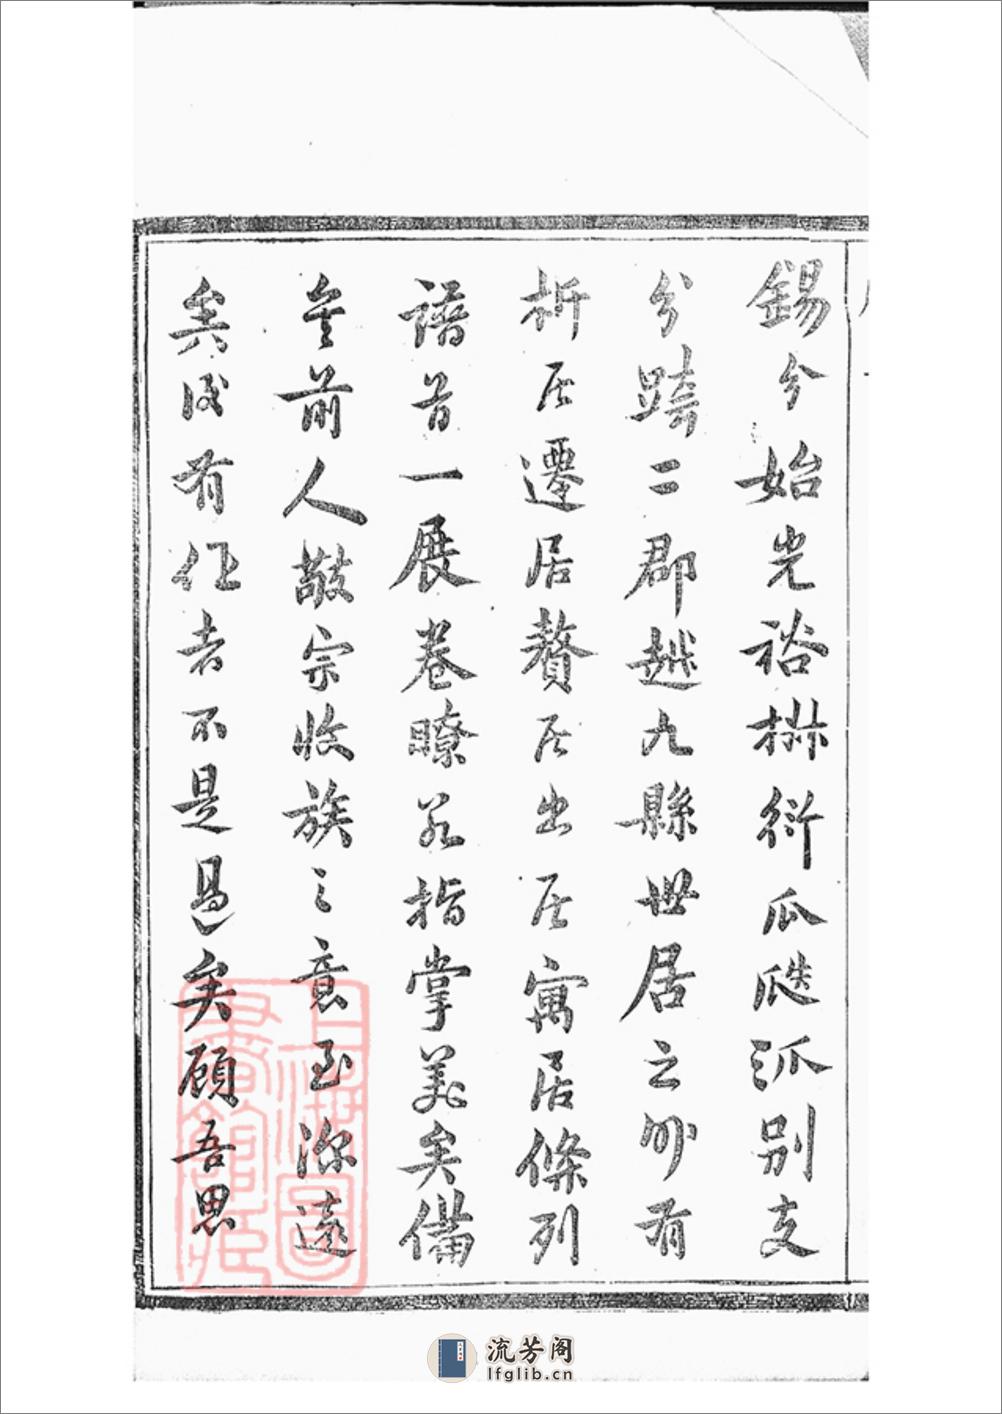 錫分始光裕椒衍瓜瓞派別支
分跨二郡越九縣世居之外有
析居遷居贅居出居寓居條列
譜首一展卷瞭若指掌美矣備
矣前人敬宗收族之意至深遠
矣後有作者不是過矣顧吾思
上海圖書館藏
流芳阁
lfglib.cn